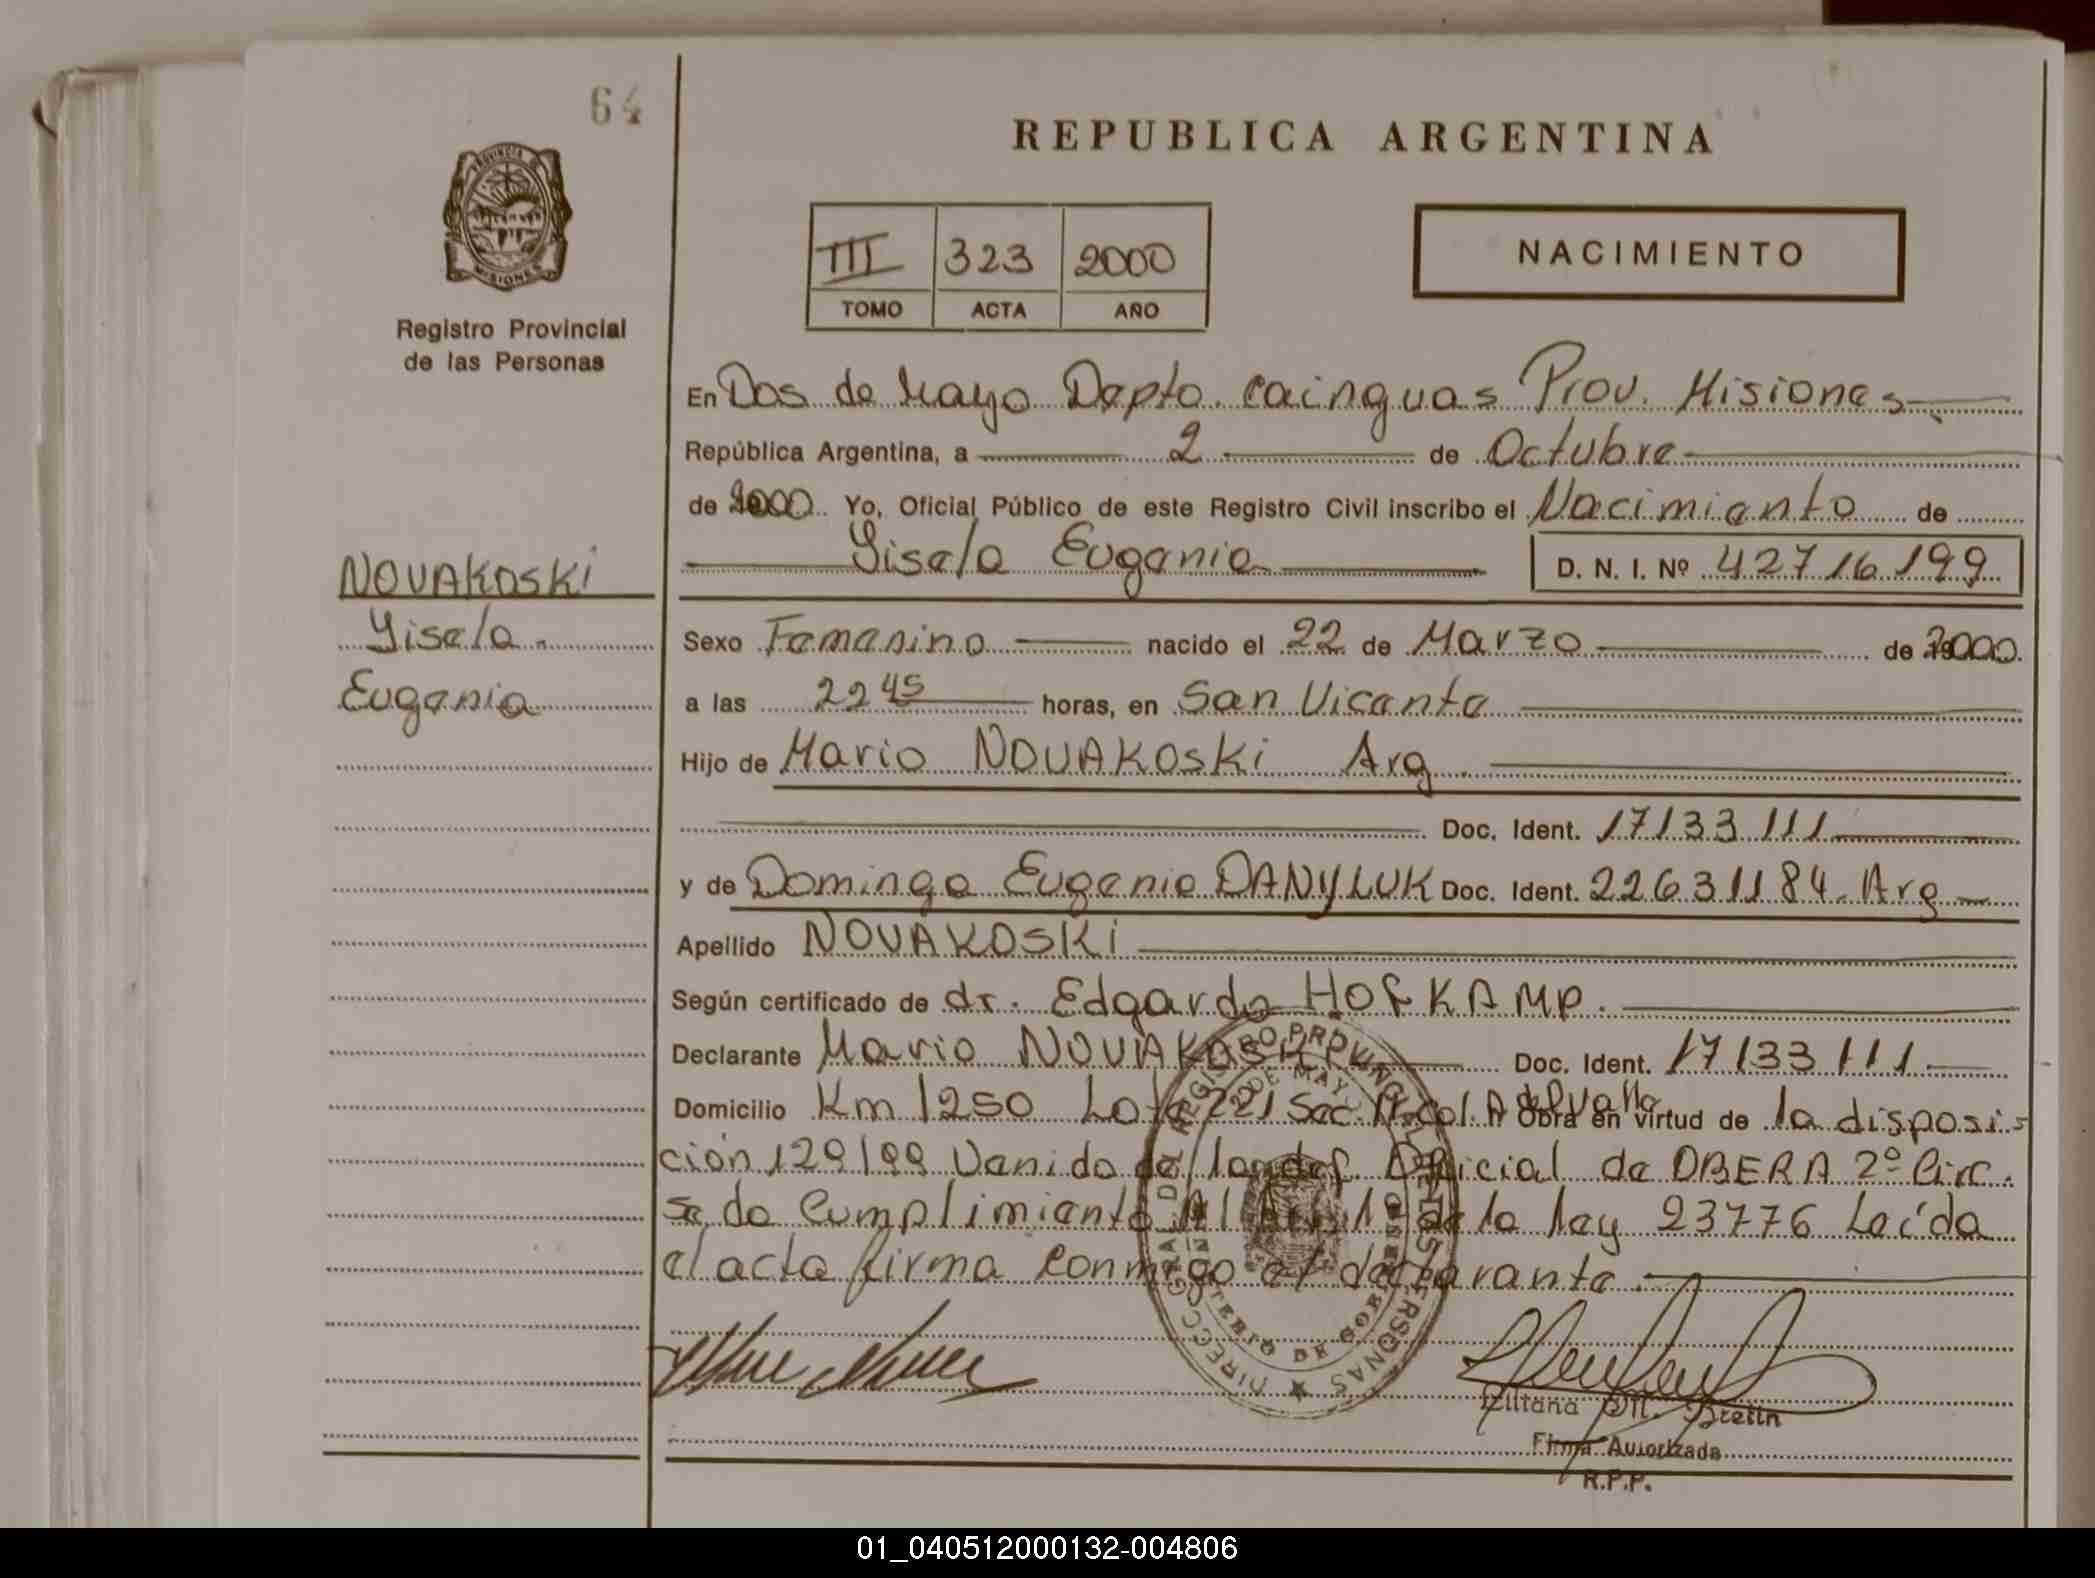 64
REPUBLICA ARGENTINA
PROVINCIA DE
MISIONES
Registro Provincial
de las Personas
III 323 2000
TOMO ACTA AÑO
NACIMIENTO
En Dos de Mayo Depto. Cainguas Prov. Misiones
República Argentina, a 2 de Octubre
de 2000 Yo, Oficial Público de este Registro Civil inscribo el Nacimiento de
Gisela Eugenia D. N. I. Nº 42716199
NOVAKOSKI
Gisela
Eugenia
Sexo Femenino nacido el 22 de Marzo de 2000
a las 22 45 horas, en San Vicente
Hijo de Mario NOVAKOSKI Arg.
Doc. Ident. 17133111
y de Dominga Eugenia DANYLUK Doc. Ident. 22631184. Arg
Apellido NOVAKOSKI
Según certificado de dr. Edgardo HOFKAMP.
Declarante Mario NOVAKOSKI Doc. Ident. 17133111
Domicilio Km 1250 Lote 221 Sec. Col. A del Valle Obra en virtud de la disposi-
ción 129/99 Venido de Oficial de OBERA 2º Circ.
se da Cumplimiento Al Art. 1º de la ley 23776 Leída
el acta firma conmigo el declarante.
Liliana M.
Firma Autorizada
R.P.P.
01_040512000132-004806